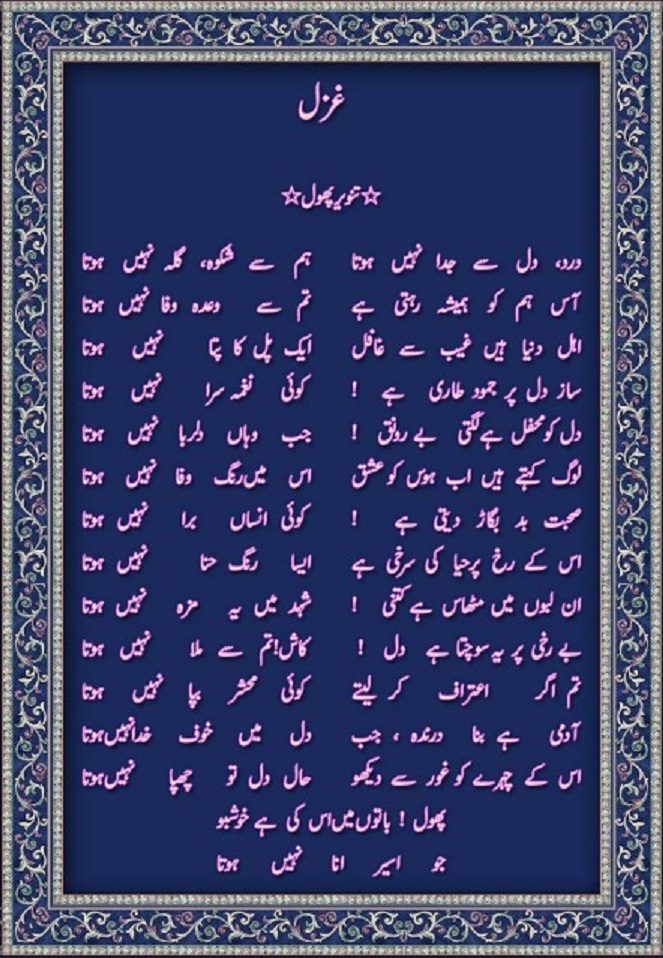 غزل
☆تنویر پھول☆
درد، دل سے جدا نہیں ہوتا ہم سے شکوہ، گلہ نہیں ہوتا
آس ہم کو ہمیشہ رہتی ہے تم سے وعدہ وفا نہیں ہوتا
اہل دنیا ہیں غیب سے غافل ایک پل کا پتا نہیں ہوتا
ساز دل پر جمود طاری ہے ! کوئی نغمہ سرا نہیں ہوتا
دل کو محفل ہے لگتی بے رونق ! جب وہاں دلربا نہیں ہوتا
لوگ کہتے ہیں اب ہوس کو عشق اس میں رنگ وفا نہیں ہوتا
صحبت بد بگاڑ دیتی ہے ! کوئی انساں برا نہیں ہوتا
اس کے رخ پر حیا کی سرخی ہے ایسا رنگ حنا نہیں ہوتا
ان لبوں میں مٹھاس ہے کتنی ! شہد میں یہ مزہ نہیں ہوتا
بے رخی پر یہ سوچتا ہے دل ! کاش!تم سے ملا نہیں ہوتا
تم اگر اعتراف کر لیتے کوئی محشر بپا نہیں ہوتا
آدمی ہے بنا درندہ ، جب دل میں خوف خدا نہیں ہوتا
اس کے چہرے کو غور سے دیکھو حال دل تو چھپا نہیں ہوتا
پھول ! باتوں میں اس کی ہے خوشبو
جو اسیر انا نہیں ہوتا